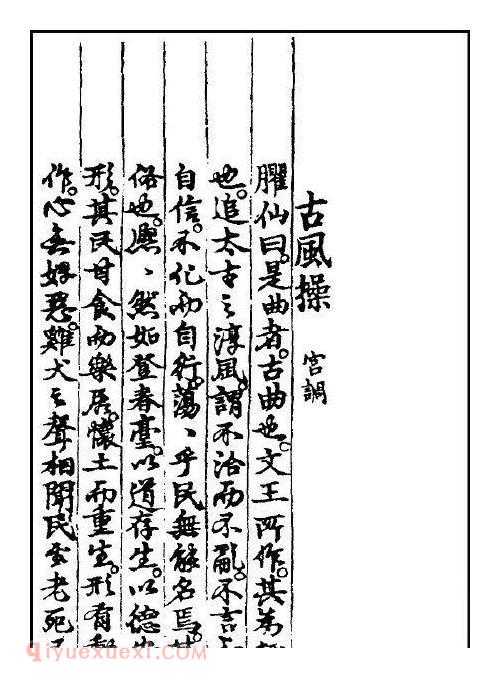 古風操 宮調
臞仙曰。是曲者。古曲也。文王所作。其為
也。追太古之淳風。謂不治而不亂。不言
自信。不化而自行。蕩、乎民無能名焉。其
俗也。熈、然如登春臺。以道存生。以德
形。其民甘食而樂居。懷土而重生。形有
作。心無好惡。雞犬之聲相聞。民至老死
qiyuexuexi.com